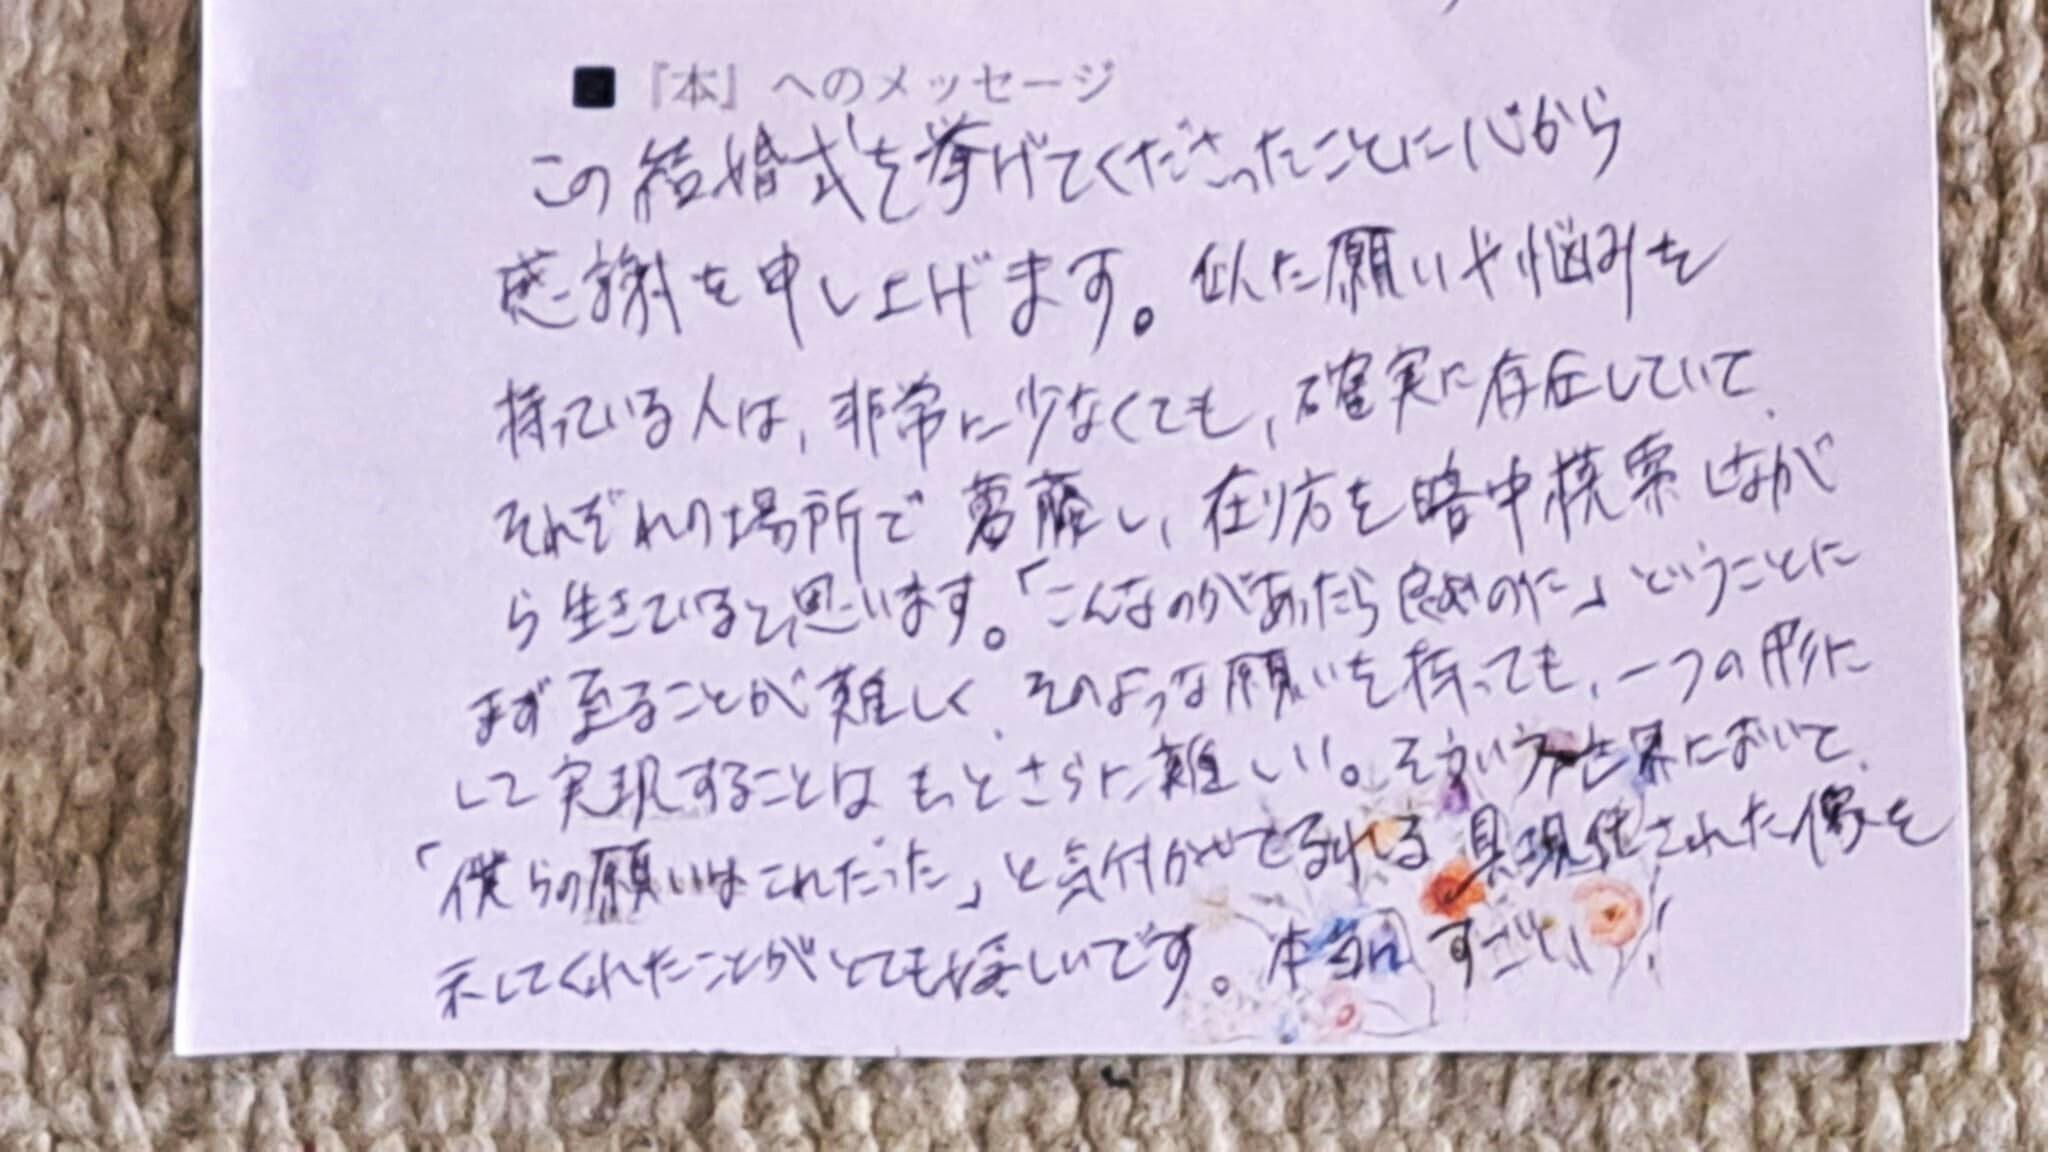 ■『本』へのメッセージ
この結婚式を挙げてくださったことに心から
感謝を申し上げます。似た願いや悩みを
持っている人は、非常に少なくても、確実に存在していて、
それぞれの場所で葛藤し、在り方を暗中模索しなが
ら生きていると思います。「こんなのがあったら良いのに」ということに
まず至ることが難しく、そのような願いを持っても、一つの形に
して実現することはもっとさらに難しい。そういう世界において、
「僕らの願いはこれだった」と気付かせてくれる具現化された像を
示してくれたことがとても嬉しいです。本当にすごい!